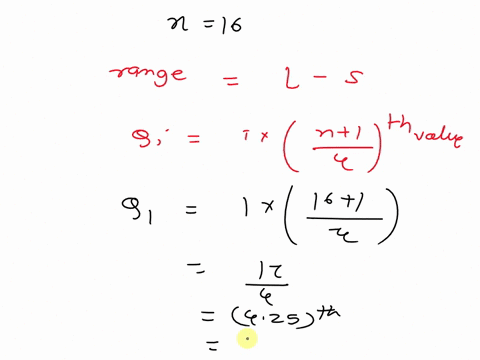 n = 16
range = L - S
Qi = i × (n+1/4)th value
Q1 = 1 × (16+1/4)
= 17/4
= (4.25)th
=